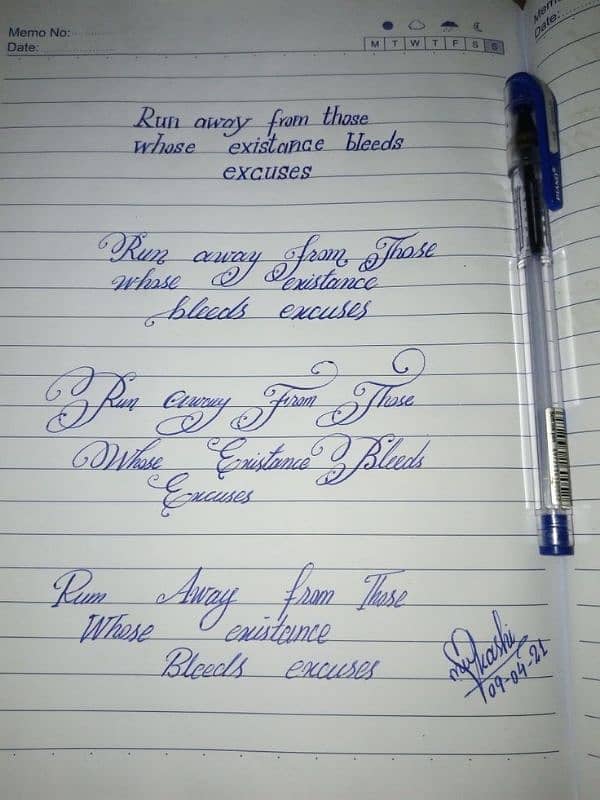 Memo No:
Date:
M T W T F S S
Run away from those
whose existance bleeds
excuses
Run away from Those
whose existance
bleeds excuses
Run away From Those
Whose Existance Bleeds
Excuses
Run Away from Those
Whose existance
Bleeds excuses
09-04-21